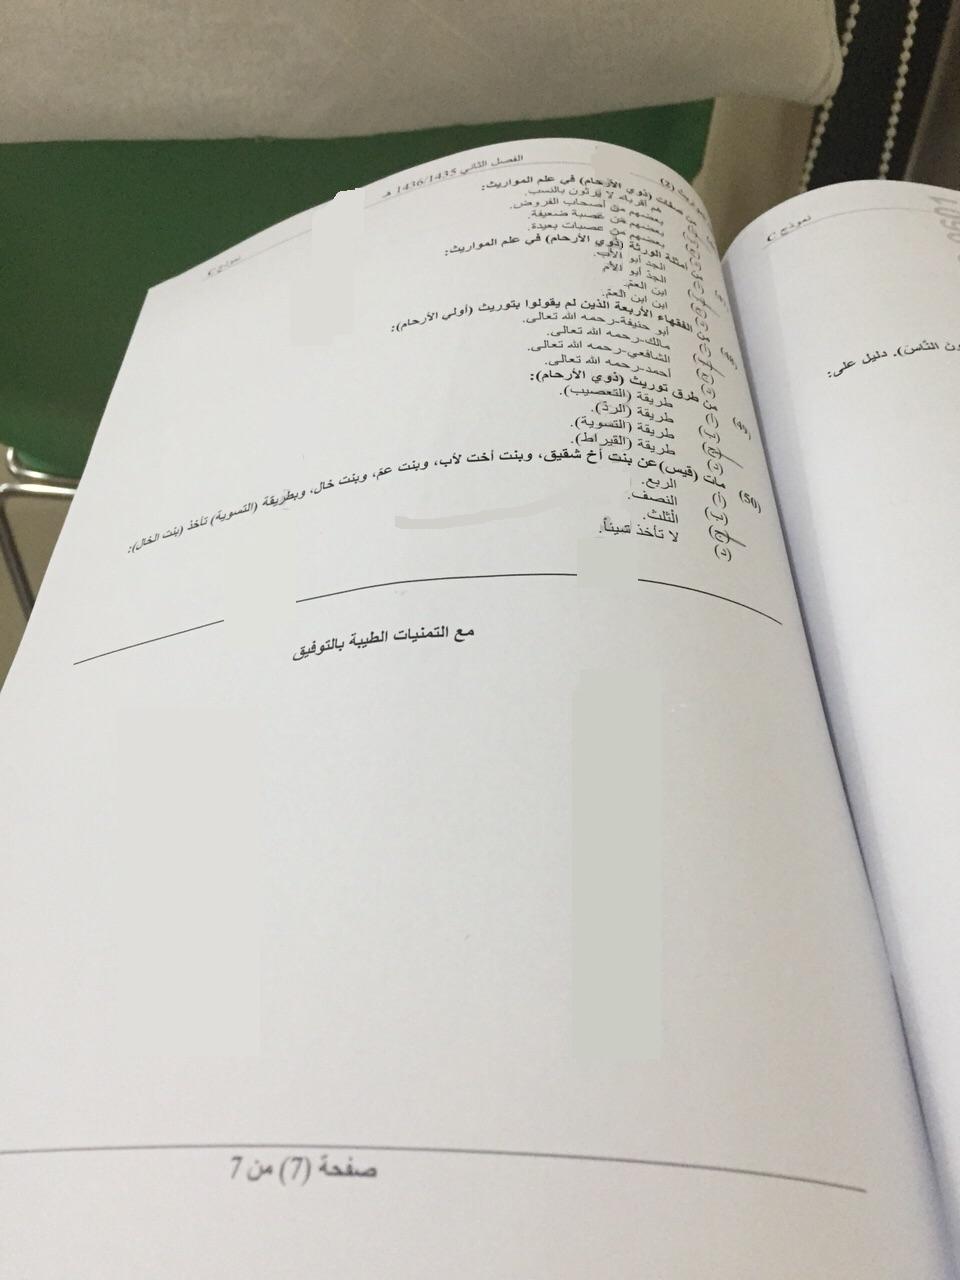 الفصل الثاني 1436/1435 هـ
نموذج C
من صفات (ذوي الأرحام) في علم المواريث:
هم أقرباء لا يرثون بالنسب.
بعضهم من أصحاب الفروض.
بعضهم من عصبة ضعيفة.
بعضهم من عصبات بعيدة.
أمثلة الورثة (ذوي الأرحام) في علم المواريث:
الجد أبو الأب.
الجد أبو الأم
ابن العم.
ابن ابن العم.
(48) من الفقهاء الأربعة الذين لم يقولوا بتوريث (أولي الأرحام):
أبو حنيفة-رحمه الله تعالى.
مالك-رحمه الله تعالى.
الشافعي-رحمه الله تعالى.
أحمد-رحمه الله تعالى.
(49) من طرق توريث (ذوي الأرحام):
طريقة (التعصيب).
طريقة (الردّ).
طريقة (التسوية).
طريقة (القيراط).
(50) مات (قيس) عن بنت أخ شقيق، وبنت أخت لأب، وبنت عم، وبنت خال، وبطريقة (التسوية) تأخذ (بنت الخال):
الربع.
النصف.
الثلث.
لا تأخذ شيئاً.
مع التمنيات الطيبة بالتوفيق
صفحة (7) من 7
نموذج C
دليل على: